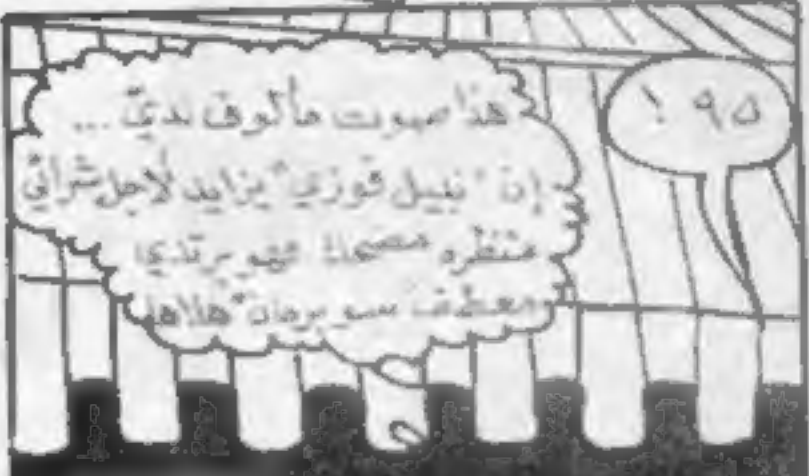 ٩٥ !
هذا صوت مألوف لديّ ...
إن "نبيل فوزي" يزايد لأجل شرائي
منظره مضحك فهو يرتدي
معطف سوبرمان هلاها